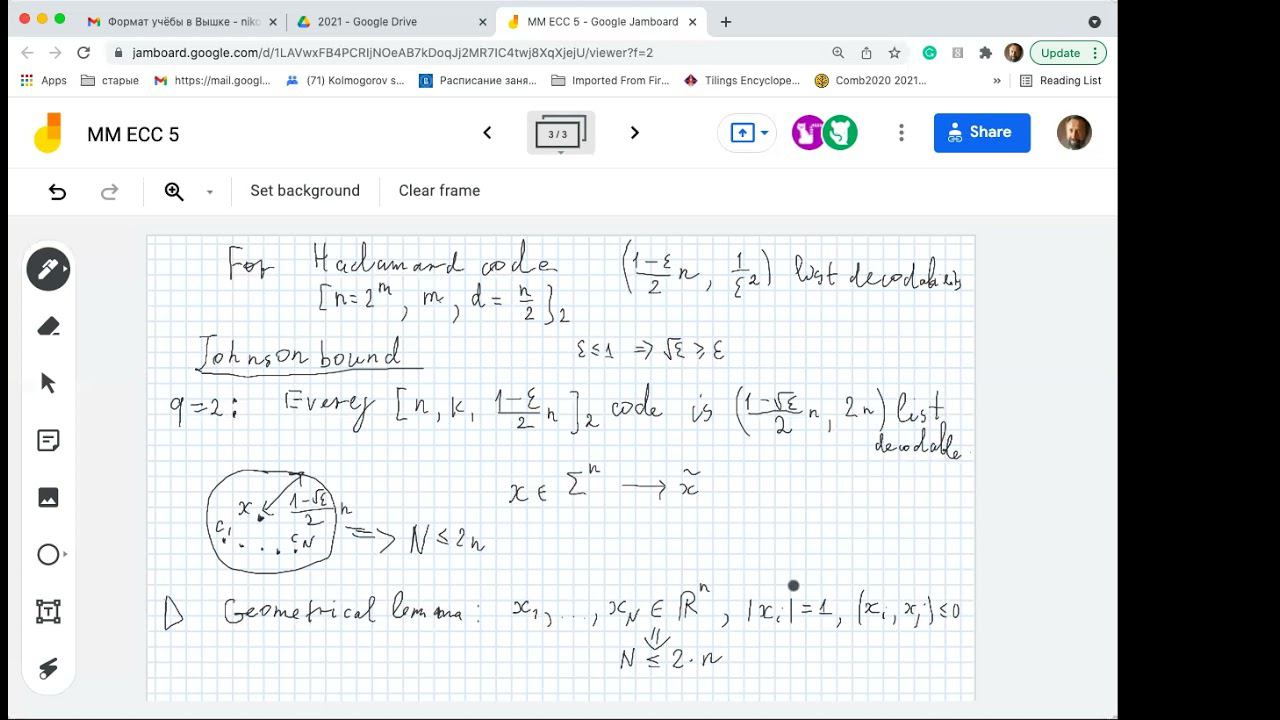 Формат учёбы в Вышке - niko
2021 - Google Drive
MM ECC 5 - Google Jamboard
jamboard.google.com/d/1LAVwxFB4PCRIjNOeAB7kDoqJj2MR7IC4twj8XqXjejU/viewer?f=2
Update
Apps
старые
https://mail.googl...
(71) Kolmogorov s...
Расписание заня...
Imported From Fir...
Tilings Encyclope...
Comb2020 2021...
»
Reading List
MM ECC 5
3 / 3
Share
Set background
Clear frame
For Hadamard code ((1-ε)/2 n, 1/ε²) list decodable
[n=2^m, m, d = n/2]_2
Johnson bound ε ≤ 1 => √ε ≥ ε
q=2: Every [n, k, (1-ε)/2 n]_2 code is ((1-√ε)/2 n, 2n) list
decodable
x ∈ Σ^n → x̃
x (1-√ε)/2 n
c_1 ... c_N => N ≤ 2n
▷ Geometrical lemma: x_1, ..., x_N ∈ ℝ^n, |x_i| = 1, (x_i, x_j) ≤ 0
⇓
N ≤ 2·n